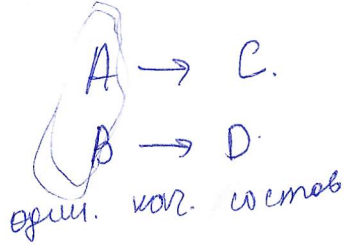 A → C.
B → D.
один. кач. состав